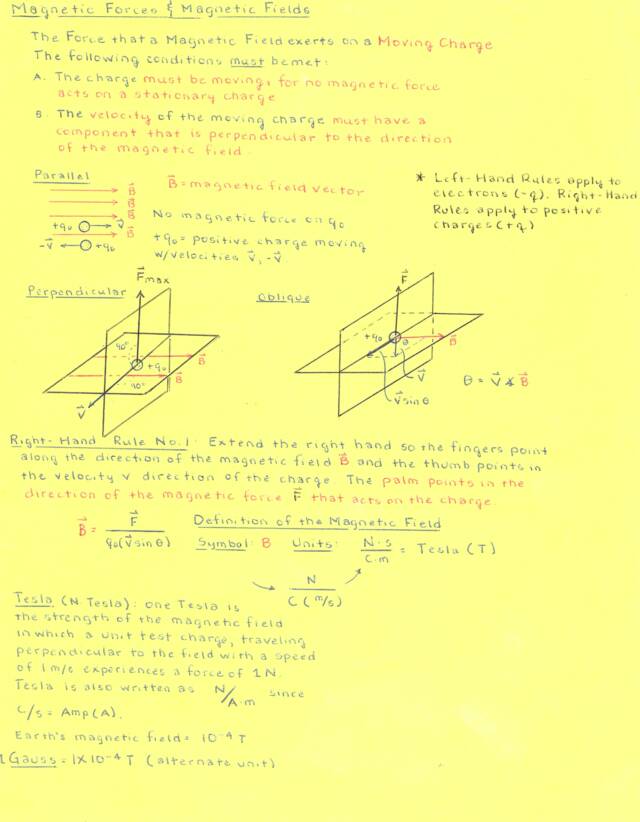 Magnetic Forces & Magnetic Fields
The Force that a Magnetic Field exerts on a Moving Charge
The following conditions must be met:
A. The charge must be moving, for no magnetic force
acts on a stationary charge
B. The velocity of the moving charge must have a
component that is perpendicular to the direction
of the magnetic field.
Parallel
B⃗
B⃗
B⃗
B⃗
+q₀
V⃗
-V⃗
+q₀
B⃗ = magnetic field vector
No magnetic force on q₀
+q₀ = positive charge moving
w/velocities V⃗, -V⃗
* Left-Hand Rules apply to
electrons (-q). Right-Hand
Rules apply to positive
charges (+q)
Perpendicular
F⃗max
90°
+q₀
B⃗
90°
B⃗
V⃗
Oblique
F⃗
+q₀
θ
B⃗
V⃗
V⃗sinθ
θ = V⃗ ∡ B⃗
Right-Hand Rule No.1: Extend the right hand so the fingers point
along the direction of the magnetic field B⃗ and the thumb points in
the velocity v direction of the charge. The palm points in the
direction of the magnetic force F⃗ that acts on the charge.
B⃗ = F⃗ / q₀(V⃗sinθ)
Definition of the Magnetic Field
Symbol: B Units: N·s / C·m = Tesla (T)
N / C (m/s)
Tesla (N Tesla): one Tesla is
the strength of the magnetic field
in which a unit test charge, traveling
perpendicular to the field with a speed
of 1 m/s experiences a force of 1N.
Tesla is also written as N/A·m since
C/s = Amp(A).
Earth's magnetic field = 10⁻⁴ T
1 Gauss = 1X10⁻⁴ T (alternate unit)